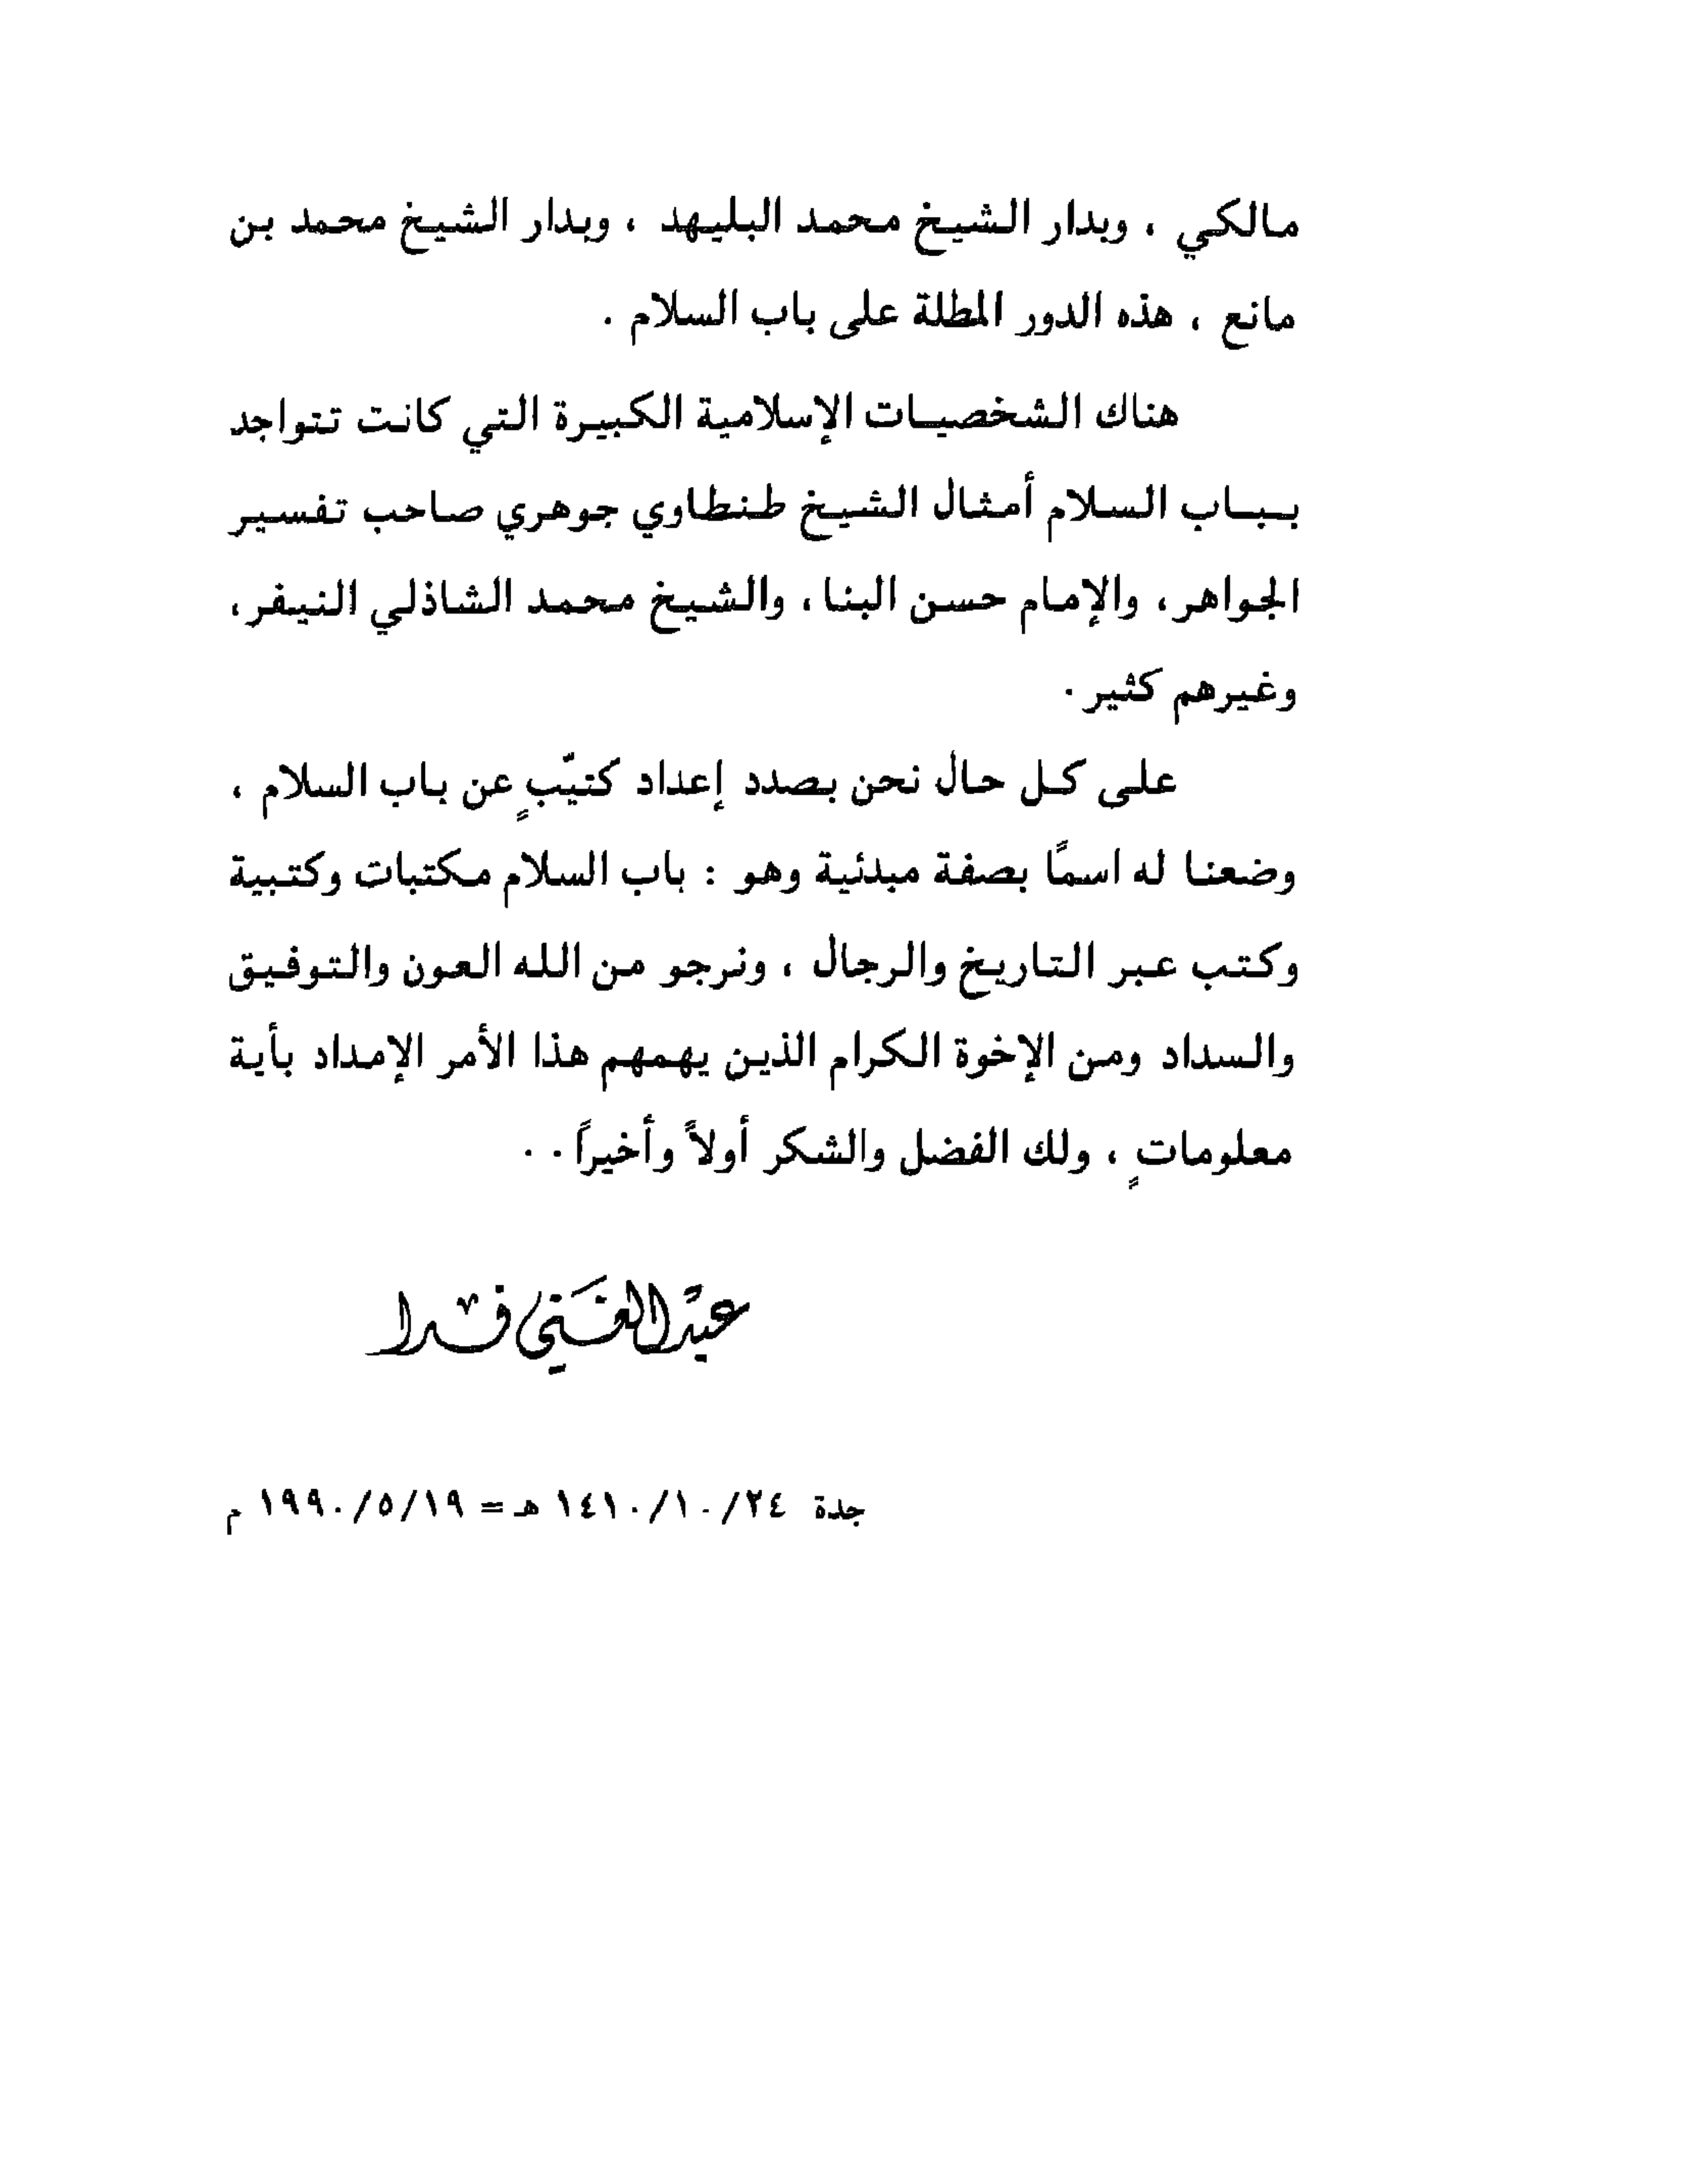 مالكي ، وبدار الشيخ محمد البليهد ، وبدار الشيخ محمد بن
مانع ، هذه الدور المطلة على باب السلام .
هناك الشخصيات الإسلامية الكبيرة التي كانت تتواجد
بباب السلام أمثال الشيخ طنطاوي جوهري صاحب تفسير
الجواهر، والإمام حسن البنا ، والشيخ محمد الشاذلي النيفر،
وغيرهم كثير .
على كل حال نحن بصدد إعداد كتيّبٍ عن باب السلام ،
وضعنا له اسمًا بصفة مبدئية وهو : باب السلام مكتبات وكتبية
وكتب عبر التاريخ والرجال ، ونرجو من الله العون والتوفيق
والسداد ومن الإخوة الكرام الذين يهمهم هذا الأمر الإمداد بأية
معلوماتٍ ، ولك الفضل والشكر أولاً وأخيراً . .
عبد الغني فدا
جدة ١٤١٠/١٠/٢٤ هـ = ١٩٩٠/٥/١٩ م